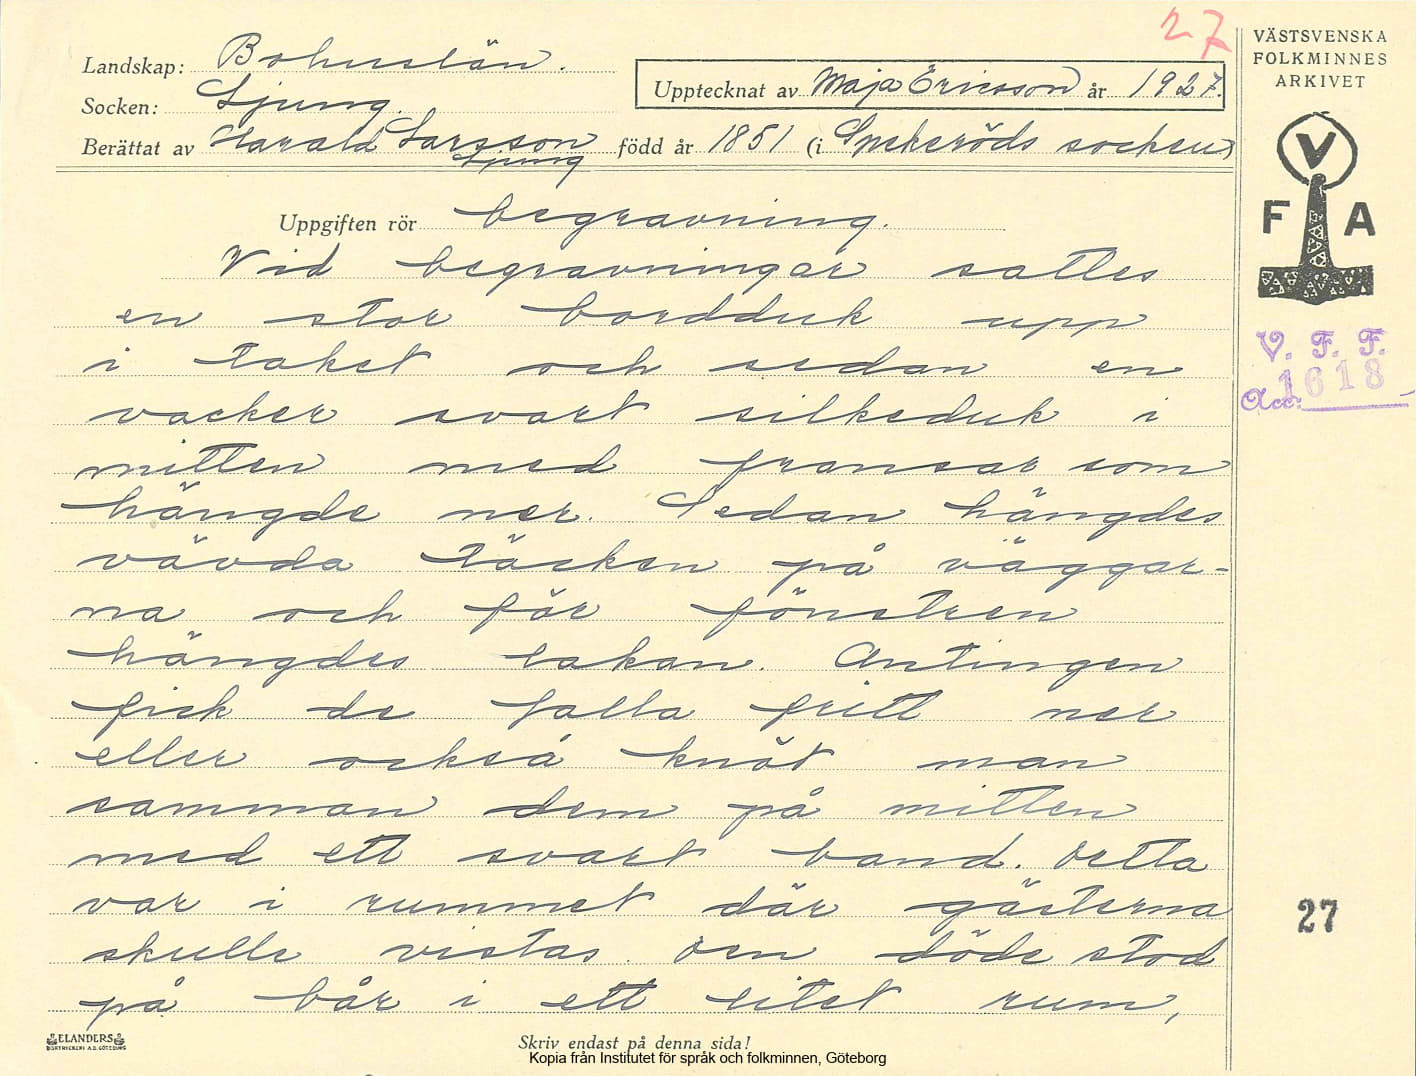 27
VÄSTSVENSKA
FOLKMINNES
ARKIVET
Landskap: Bohuslän.
Upptecknat av Maja Ericsson år 1927.
Socken: Ljung.
Berättat av Harald Larsson född år 1851 (i Spekeröds socken)
Ljung
V
F A
Uppgiften rör begravning.
Vid begravningar sattes
en stor bordduk upp
i taket och sedan en
vacker svart silkeduk i
mitten med fransar som
hängde ner. Sedan hängdes
vävda täcken på väggar-
na och för fönstren
hängdes lakan. Antingen
fick de falla fritt ner
eller också knöt man
samman dem på mitten
med ett svart band. Detta
var i rummet där gästerna
skulle vistas. Den döde stod
på bår i ett litet rum,
V. F. F.
Acc: 1618
27
ELANDERS
BOKTRYCKERI A.B. GÖTEBORG
Skriv endast på denna sida!
Kopia från Institutet för språk och folkminnen, Göteborg